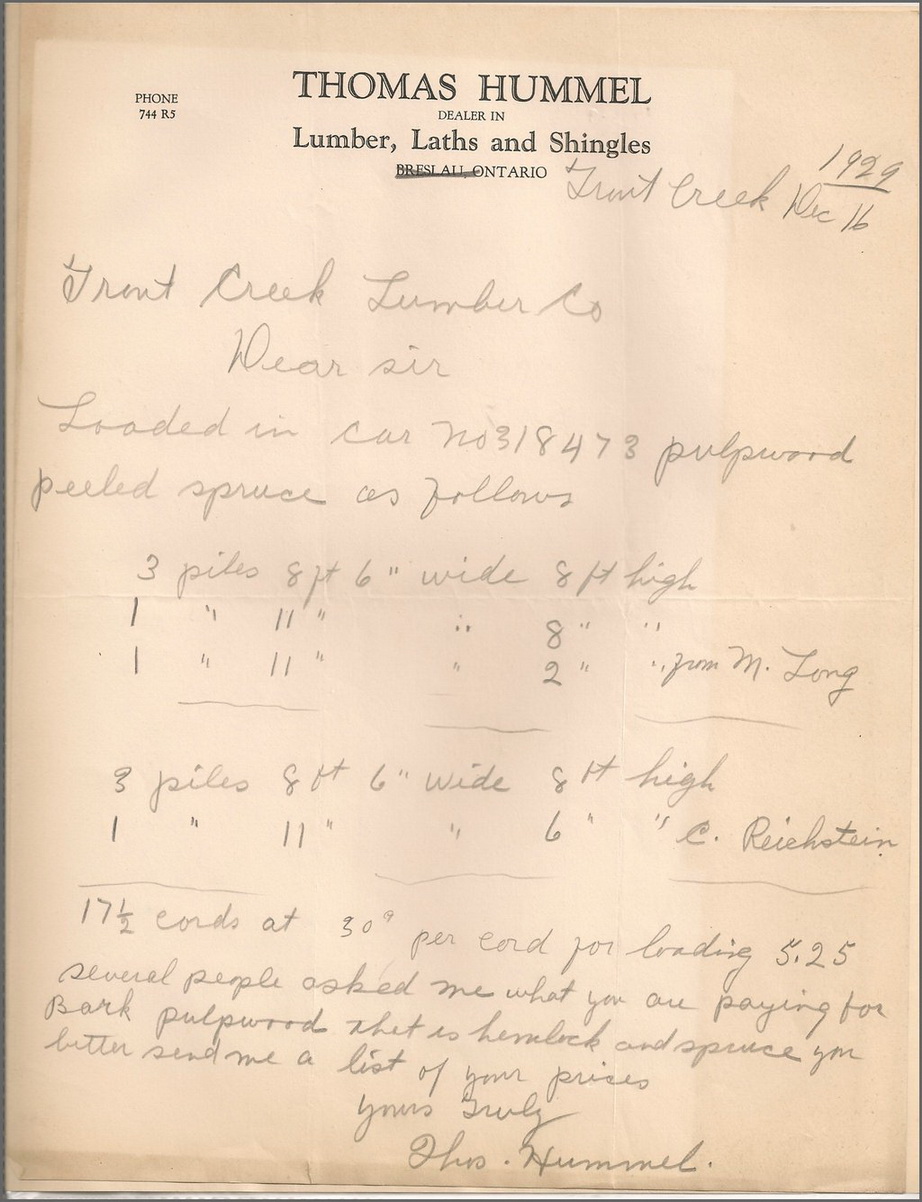 PHONE
744 R5
THOMAS HUMMEL
DEALER IN
Lumber, Laths and Shingles
BRESLAU, ONTARIO
Trout Creek Dec 16
1929
Trout Creek Lumber Co
Dear sir
Loaded in car no 318473 pulpwood
peeled spruce as follows
3 piles 8 ft 6 " wide 8 ft high
1 " 11 " " 8 " "
1 " 11 " " 2 " " from M. Long
3 piles 8 ft 6 " wide 8 ft high
1 " 11 " " 6 " " C. Reichstein
17½ cords at 30¢ per cord for loading 5.25
several people asked me what you are paying for
Bark pulpwood that is hemlock and spruce you
better send me a list of your prices
yours Truly
Thos. Hummel.